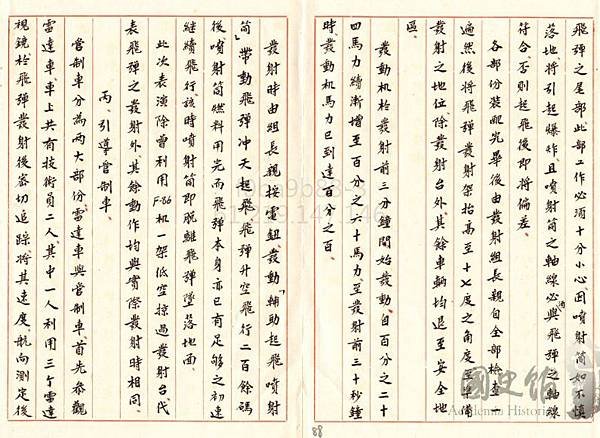 飛彈之尾部此部工作必須十分小心因噴射筒如不慎
落地將引起爆炸且噴射筒之軸線必與飛彈之軸線
符合否則起飛後即將偏差。
各部份裝配完畢後由發射組長親自全部檢查一
遍然後將飛彈發射架抬高至十七度之角度至準備
發射之地位除發射台外其餘車輛均退至安全地
區。
發動机於發射前三分鐘開始發動自百分之二十
四馬力續漸增至百分之六十馬力至發射前三十秒鐘
時發動机馬力已到達百分之百。
發射時由組長親按電鈕發動「輔助起飛噴射
筒」帶動飛彈冲天起飛飛彈升空飛行二百餘碼
後噴射筒燃料用完而飛彈本身亦已有足够之初速
繼續飛行該時噴射筒即脫離飛彈墜落地面。
此次表演除曾利用F-86机一架低空掠過發射台代
表飛彈之發射外其餘動作均與實際發射時相同。
丙、引導管制車。
管制車分為兩大部份雷達車與管制車首先參觀
雷達車車上共有技術員二人其中一人利用三個雷達
視鏡於飛彈發射後密切追踪將其速度、航向測定後
88
國史館
Academia Historica